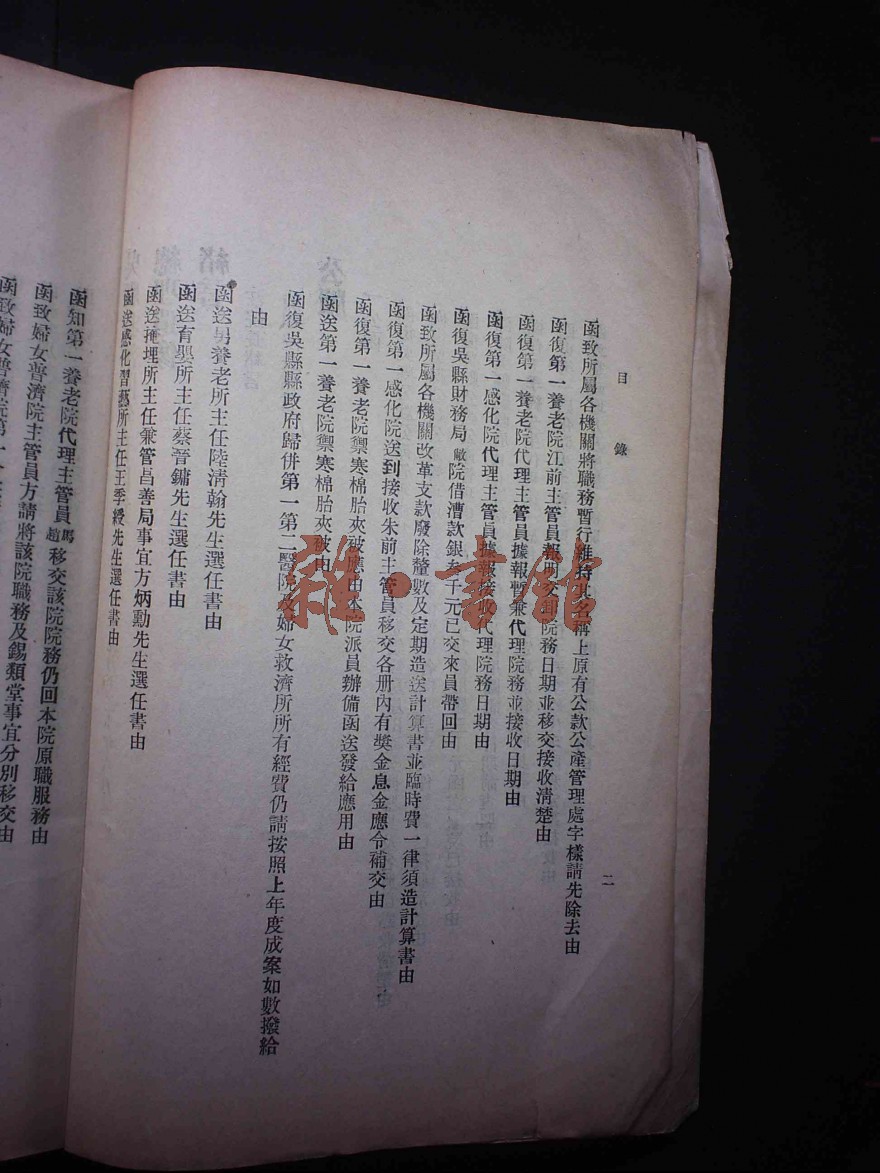 目錄
二
函致所屬各機關將職務暫行維持其名稱上原有公款公產管理處字樣請先除去由
函復第一養老院江前主管員報明交卸院務日期並移交接收清楚由
函復第一養老院代理主管員據報暫兼代理院務並接收日期由
函復第一感化院代理主管員據報接收代理院務日期由
函復吳縣財務局敝院借漕款銀叁千元已交來員帶回由
函致所屬各機關改革支款廢除釐數及定期造送計算書並臨時費一律須造計算書由
函復第一感化院送到接收朱前主管員移交各册內有獎金息金應令補交由
函復第一養老院禦寒棉胎夾被應由本院派員辦備函送發給應用由
函送第一養老院禦寒棉胎夾被由
函復吳縣縣政府歸併第一第二醫院及婦女救濟所所有經費仍請按照上年度成案如數撥給
由
函送男養老所主任陸清翰先生選任書由
函送育嬰所主任蔡晉鏞先生選任書由
函送掩埋所主任兼管昌善局事宜方炳勳先生選任書由
函送感化習藝所主任王季緩先生選任書由
函知第一養老院代理主管員馬趙移交該院院務仍回本院原職服務由
函致婦女普濟院主管員方請將該院職務及錫類堂事宜分別移交由
函致婦女普濟院第一
雜·書館